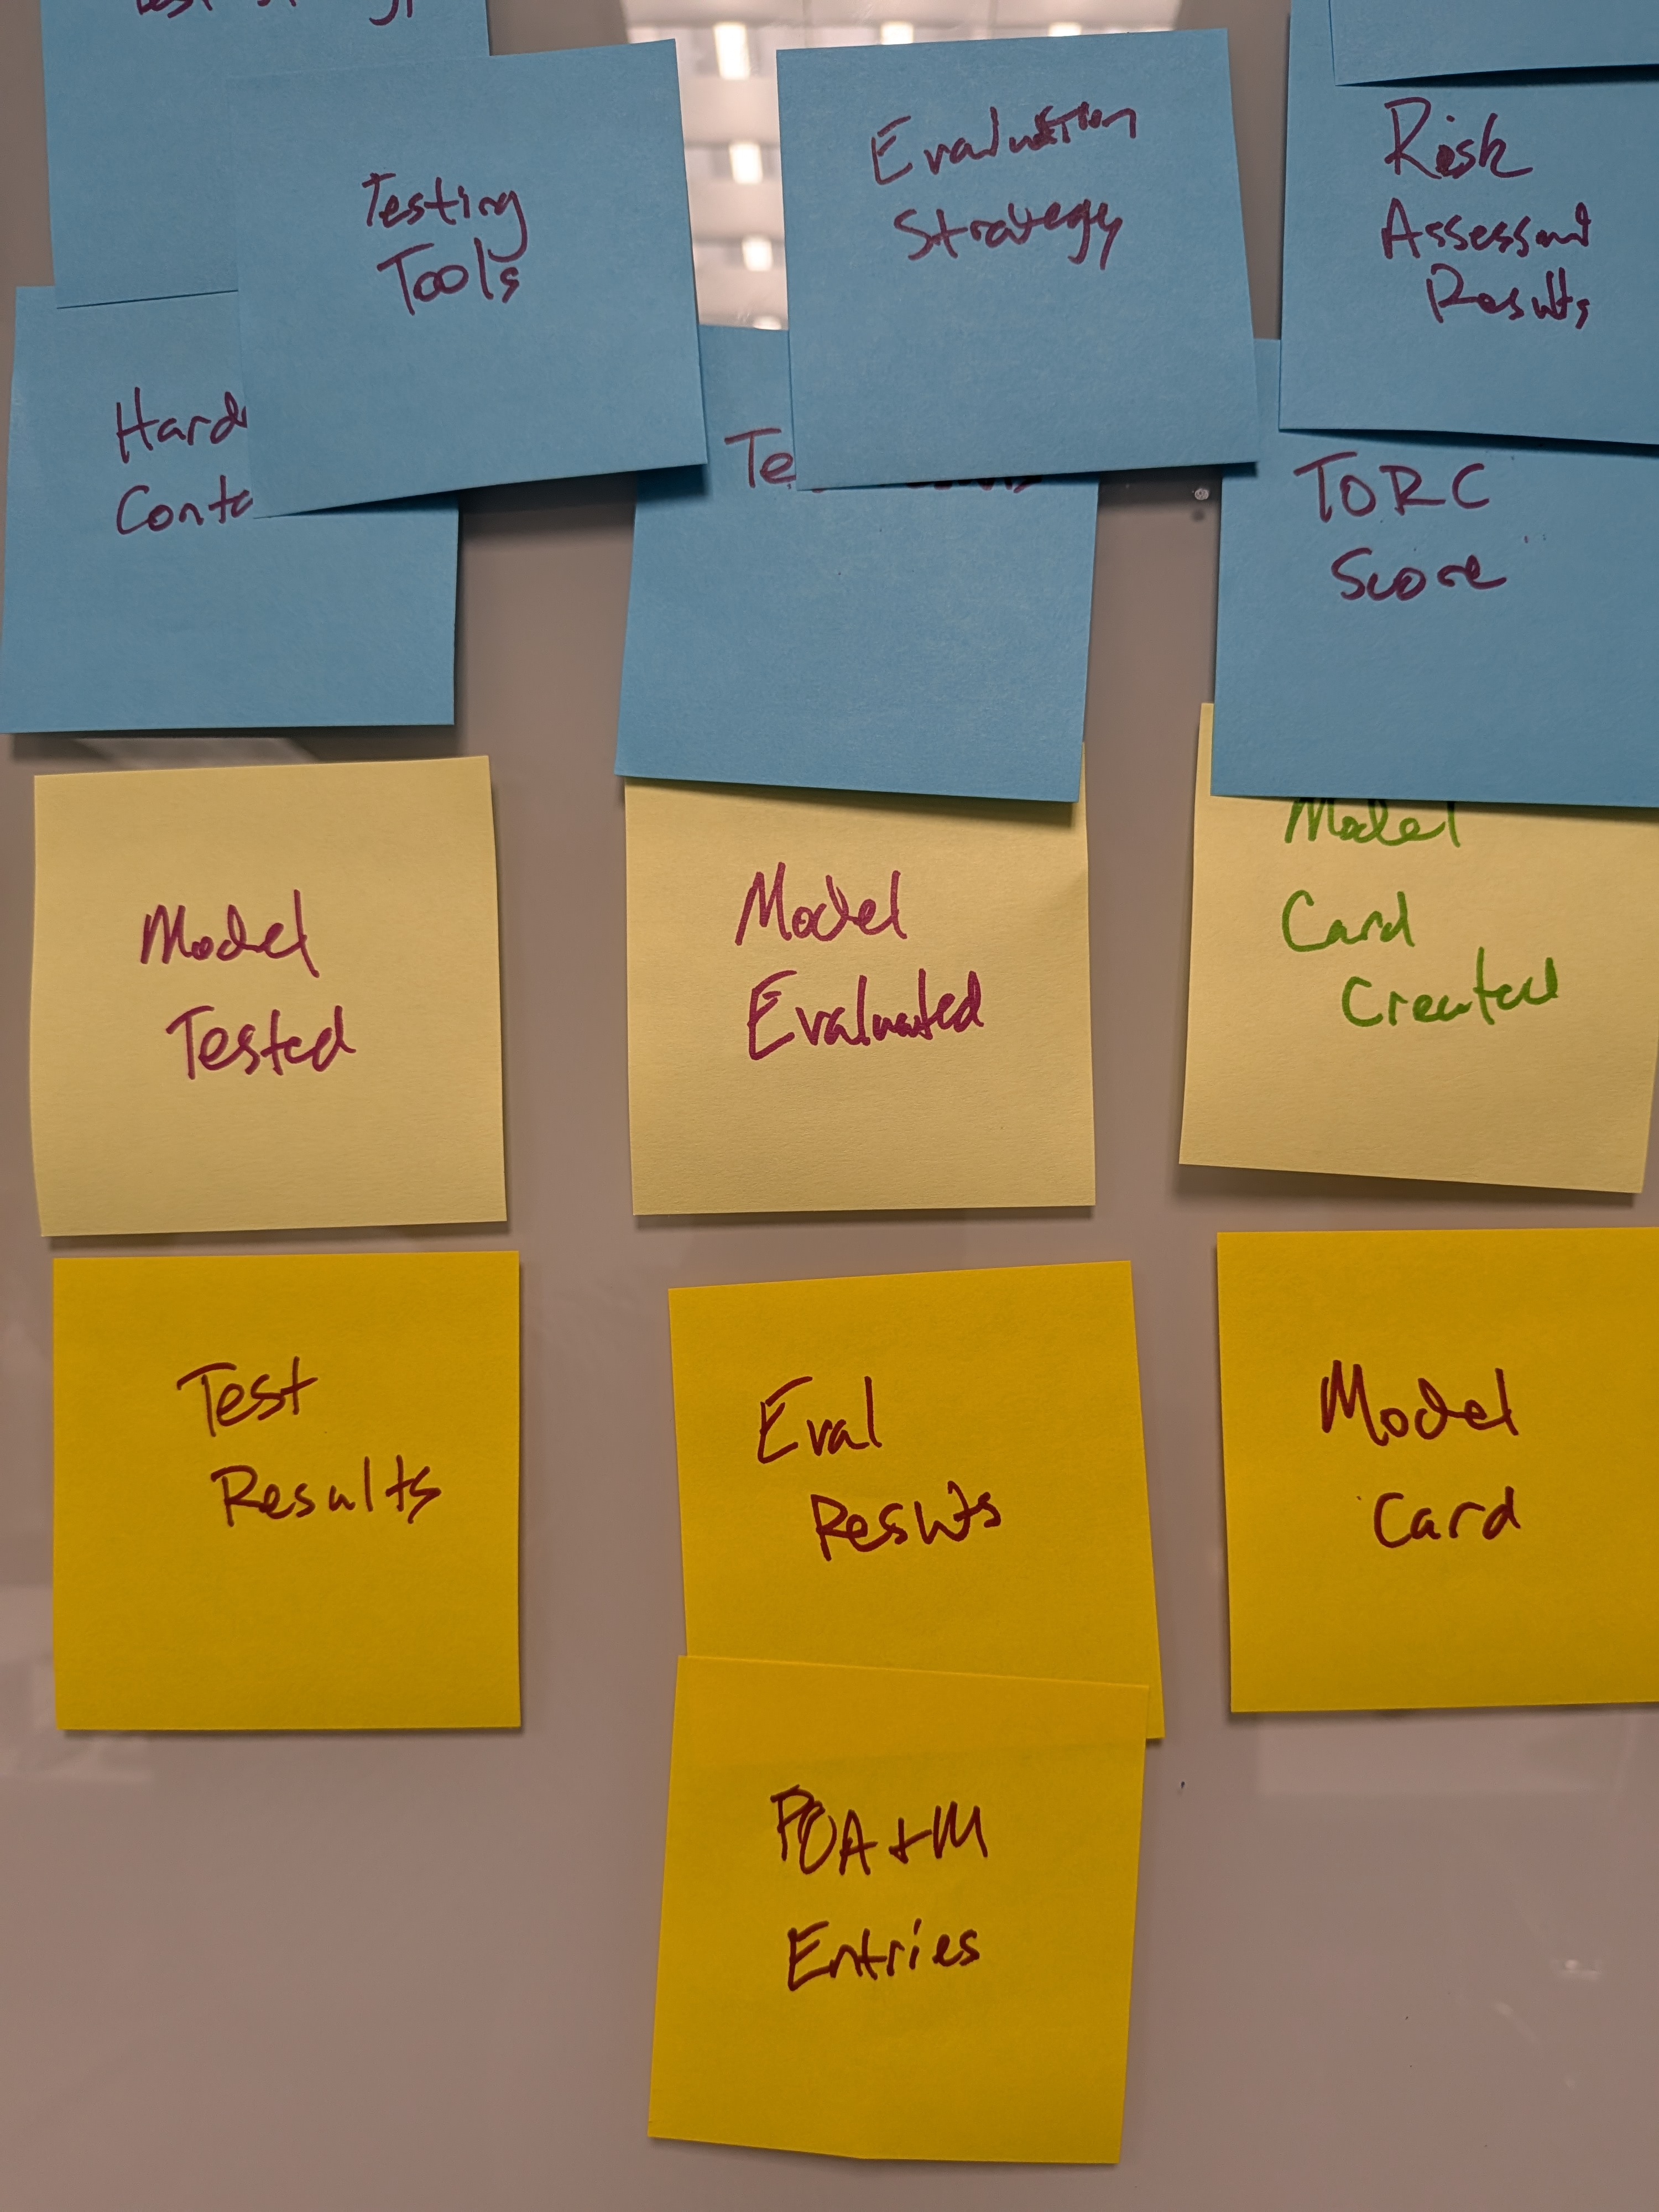 Testing
Tools
Evaluation
Strategy
Risk
Assessment
Results
Hard
Conta
Te
TORC
Score
Model
Tested
Model
Evaluated
Model
Card
Created
Test
Results
Eval
Results
Model
Card
POA+M
Entries